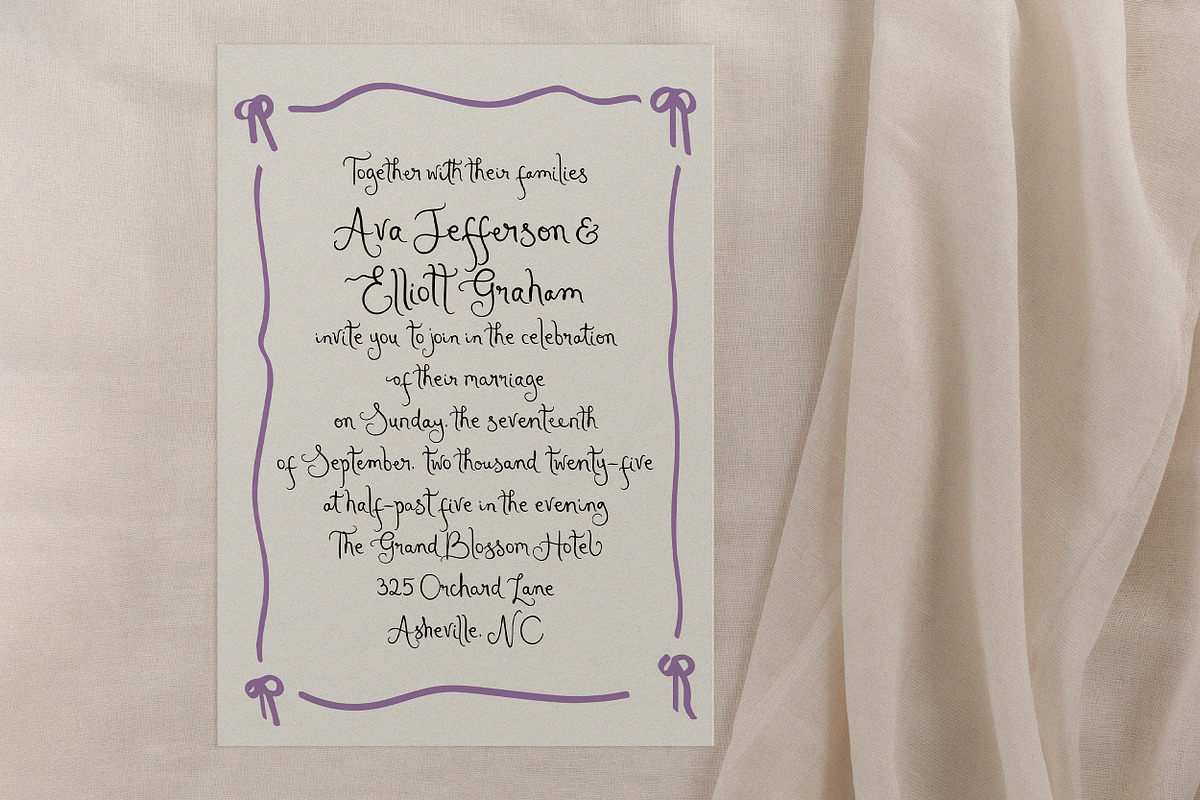 Together with their families
Ava Jefferson &
Elliott Graham
invite you to join in the celebration
of their marriage
on Sunday, the seventeenth
of September, two thousand twenty-five
at half-past five in the evening
The Grand Blossom Hotel
325 Orchard Lane
Asheville, NC